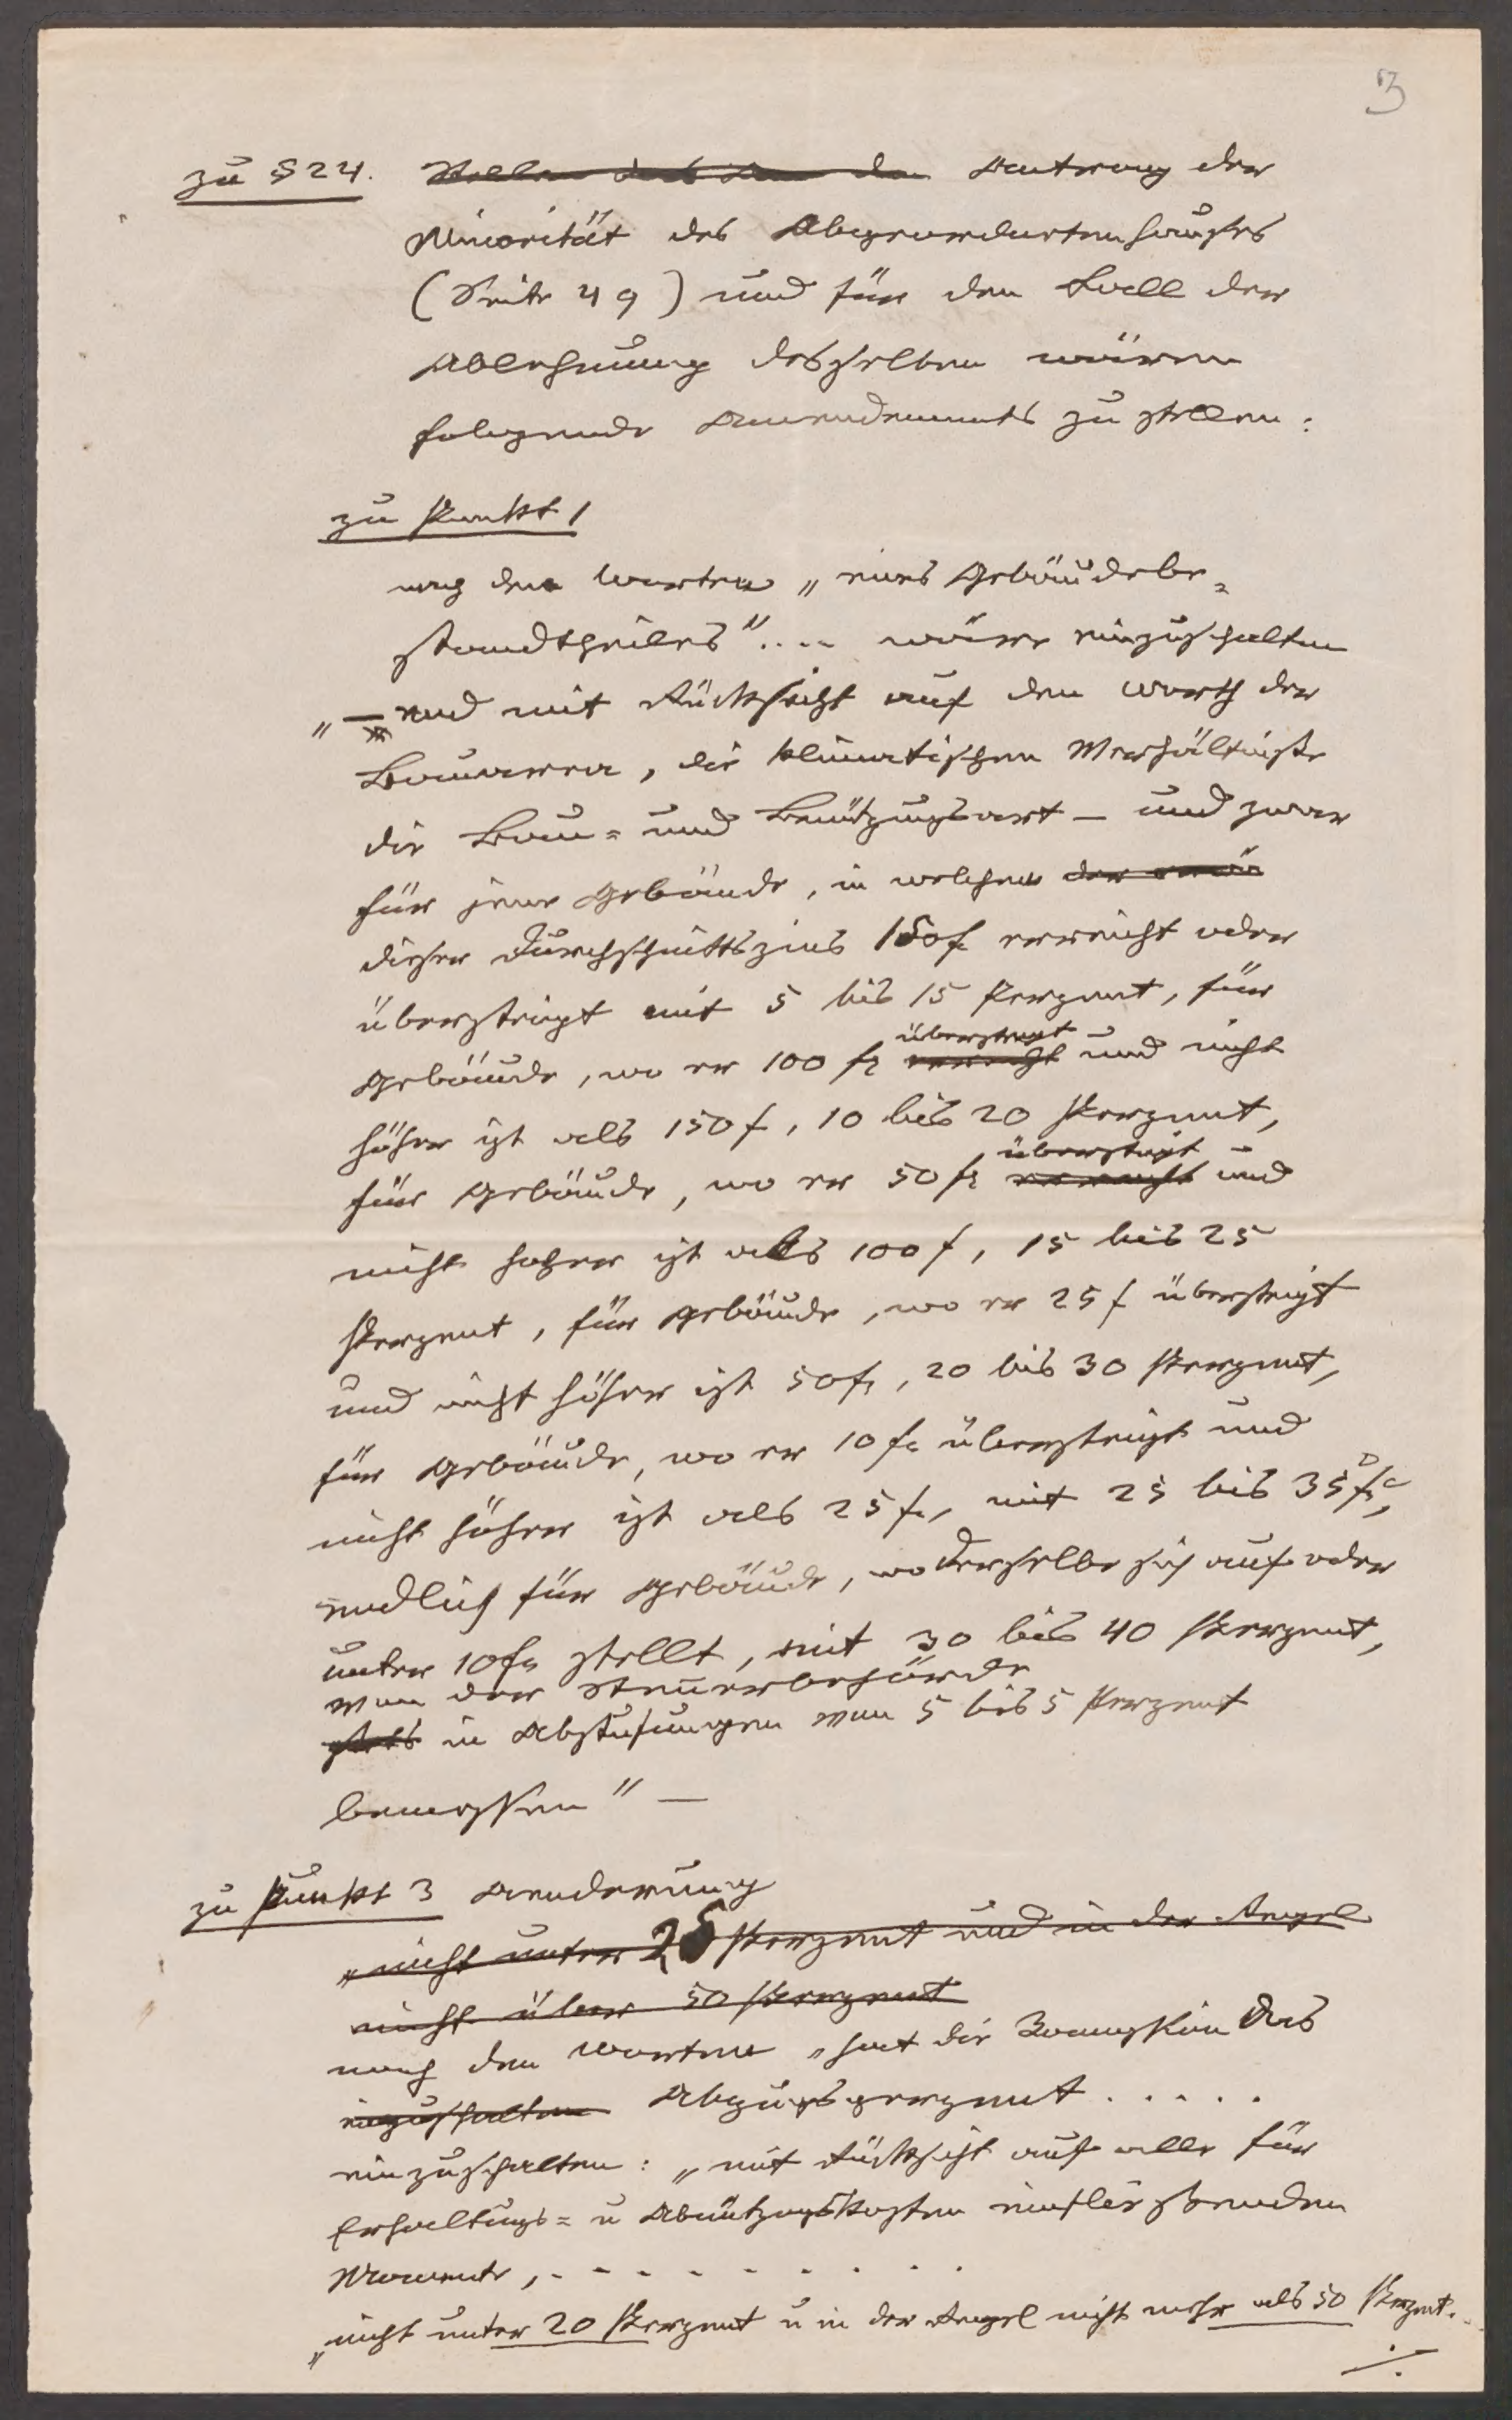 3
zu § 24. Antrag der
Minorität des Abgeordnetenhauses
(Seite 49) und für den Fall der
Ablehnung desselben wären
folgende Amendements zu stellen:
zu Punkt 1
nach den Worten „eines Gebäudebe=
standtheiles“ .... wäre einzuschalten
„— und mit Rücksicht auf den Werth der
Bauarea, die klimatischen Verhältnisse
die Bau= und Benützungsart — und zwar
für jene Gebäude, in welchen
dieser Durchschnittszins 150 f erreicht oder
übersteigt mit 5 bis 15 Perzent, für
übersteigt
Gebäude, wo er 100 fl erreicht und nicht
höher ist als 150 f, 10 bis 20 Perzent,
übersteigt
für Gebäude, wo er 50 fl erreicht und
nicht höher ist als 100 f, 15 bis 25
Perzent, für Gebäude, wo er 25 f übersteigt
und nicht höher ist 50 fl, 20 bis 30 Perzent,
für Gebäude, wo er 10 fl übersteigt und
nicht höher ist als 25 fl, mit 25 bis 35
endlich für Gebäude, wo derselbe sich auf oder
unter 10 fl stellt, mit 30 bis 40 Perzent,
von der Steuerbehörde
stets in Abstufungen von 5 bis 5 Perzent
bemessen“ —
zu Punkt 3 Aenderung
„nicht unter 25 Perzent und in der Regel
nicht über 50 Perzent
nach den Worten „hat die Kommission das
einzuschalten Abzugsperzent . . . . .
einzuschalten: „mit Rücksicht auf alle für
Erhaltungs= u Abnützungskosten
Momente, . . . . . . . . .
„nicht unter 20 Perzent u in der Regel nicht mehr als 50 Perzent.
./.